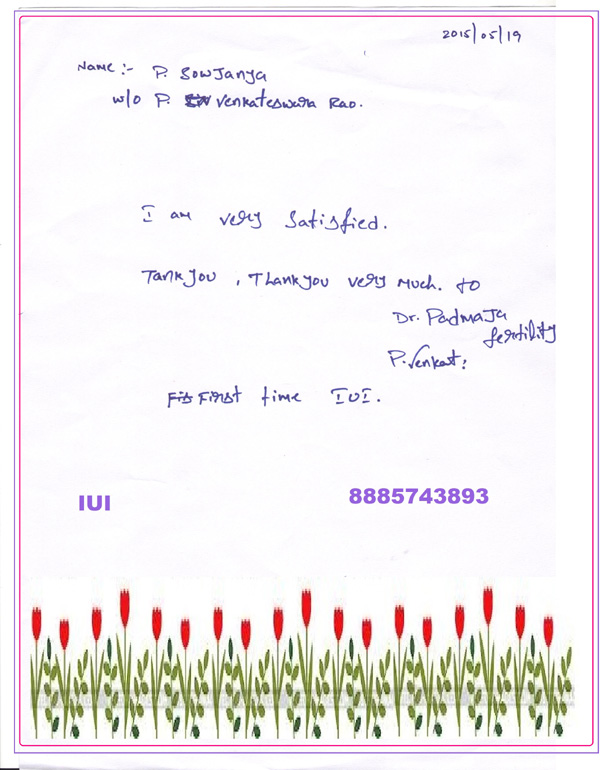 2015/05/19
Name :- P. Sowjanya
w/o P. Venkateswara Rao.
I am very satisfied.
Tankyou, Thankyou very much. to
Dr. Padmaja
fertility
P. Venkat:
First time IUI.
IUI
8885743893